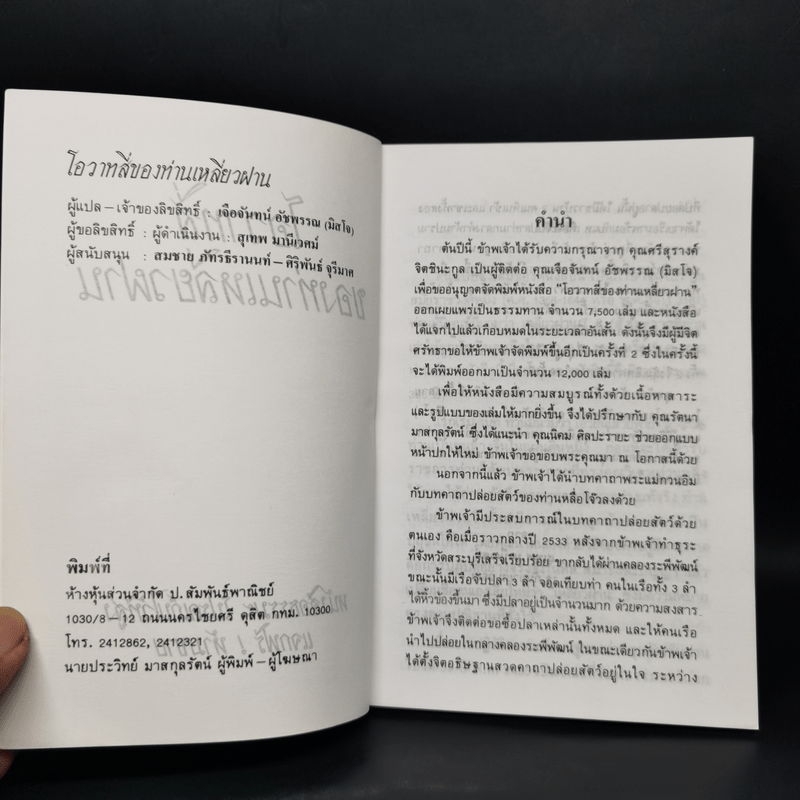 โอวาทสี่ของท่านเหลี่ยวฝาน
ผู้แปล – เจ้าของลิขสิทธิ์ : เจือจันทน์ อัชพรรณ (มิสโจ)
ผู้ขอลิขสิทธิ์ : ผู้ดำเนินงาน : สุเทพ มานีเวศม์
ผู้สนับสนุน : สมชาย ภัทรธีรานนท์ – ศิริพันธ์ จุรีมาศ
พิมพ์ที่
ห้างหุ้นส่วนจำกัด ป. สัมพันธ์พาณิชย์
1030/8 – 12 ถนนนครไชยศรี ดุสิต กทม. 10300
โทร. 2412862, 2412321
นายประวิทย์ มาสกุลรัตน์ ผู้พิมพ์ – ผู้โฆษณา
คำนำ
ต้นปีนี้ ข้าพเจ้าได้รับความกรุณาจาก คุณศรีสุรางค์
จิตชินะกูล เป็นผู้ติดต่อ คุณเจือจันทน์ อัชพรรณ (มิสโจ)
เพื่อขออนุญาตจัดพิมพ์หนังสือ “โอวาทสี่ของท่านเหลี่ยวฝาน”
ออกเผยแพร่เป็นธรรมทาน จำนวน 7,500 เล่ม และหนังสือ
ได้แจกไปแล้วเกือบหมดในระยะเวลาอันสั้น ดังนั้นจึงมีผู้มีจิต
ศรัทธาขอให้ข้าพเจ้าจัดพิมพ์ขึ้นอีกเป็นครั้งที่ 2 ซึ่งในครั้งนี้
จะได้พิมพ์ออกมาเป็นจำนวน 12,000 เล่ม
เพื่อให้หนังสือมีความสมบูรณ์ทั้งด้วยเนื้อหาสาระ
และรูปแบบของเล่มให้มากยิ่งขึ้น จึงได้ปรึกษากับ คุณรัตนา
มาสกุลรัตน์ ซึ่งได้แนะนำ คุณนิคม ศิลปะรายะ ช่วยออกแบบ
หน้าปกให้ใหม่ ข้าพเจ้าขอขอบพระคุณมา ณ โอกาสนี้ด้วย
นอกจากนี้แล้ว ข้าพเจ้าได้นำบทคาถาพระแม่กวนอิม
กับบทคาถาปล่อยสัตว์ของท่านหลื่อโจ๊วลงด้วย
ข้าพเจ้ามีประสบการณ์ในบทคาถาปล่อยสัตว์ด้วย
ตนเอง คือเมื่อราวกลางปี 2533 หลังจากข้าพเจ้าทำธุระ
ที่จังหวัดสระบุรีเสร็จเรียบร้อย ขากลับได้ผ่านคลองระพีพัฒน์
ขณะนั้นมีเรือจับปลา 3 ลำ จอดเทียบท่า คนในเรือทั้ง 3 ลำ
ได้หิ้วข้องขึ้นมา ซึ่งมีปลาอยู่เป็นจำนวนมาก ด้วยความสงสาร
ข้าพเจ้าจึงติดต่อขอซื้อปลาเหล่านั้นทั้งหมด และให้คนเรือ
นำไปปล่อยในกลางคลองระพีพัฒน์ ในขณะเดียวกันข้าพเจ้า
ได้ตั้งจิตอธิษฐานสวดคาถาปล่อยสัตว์อยู่ในใจ ระหว่าง